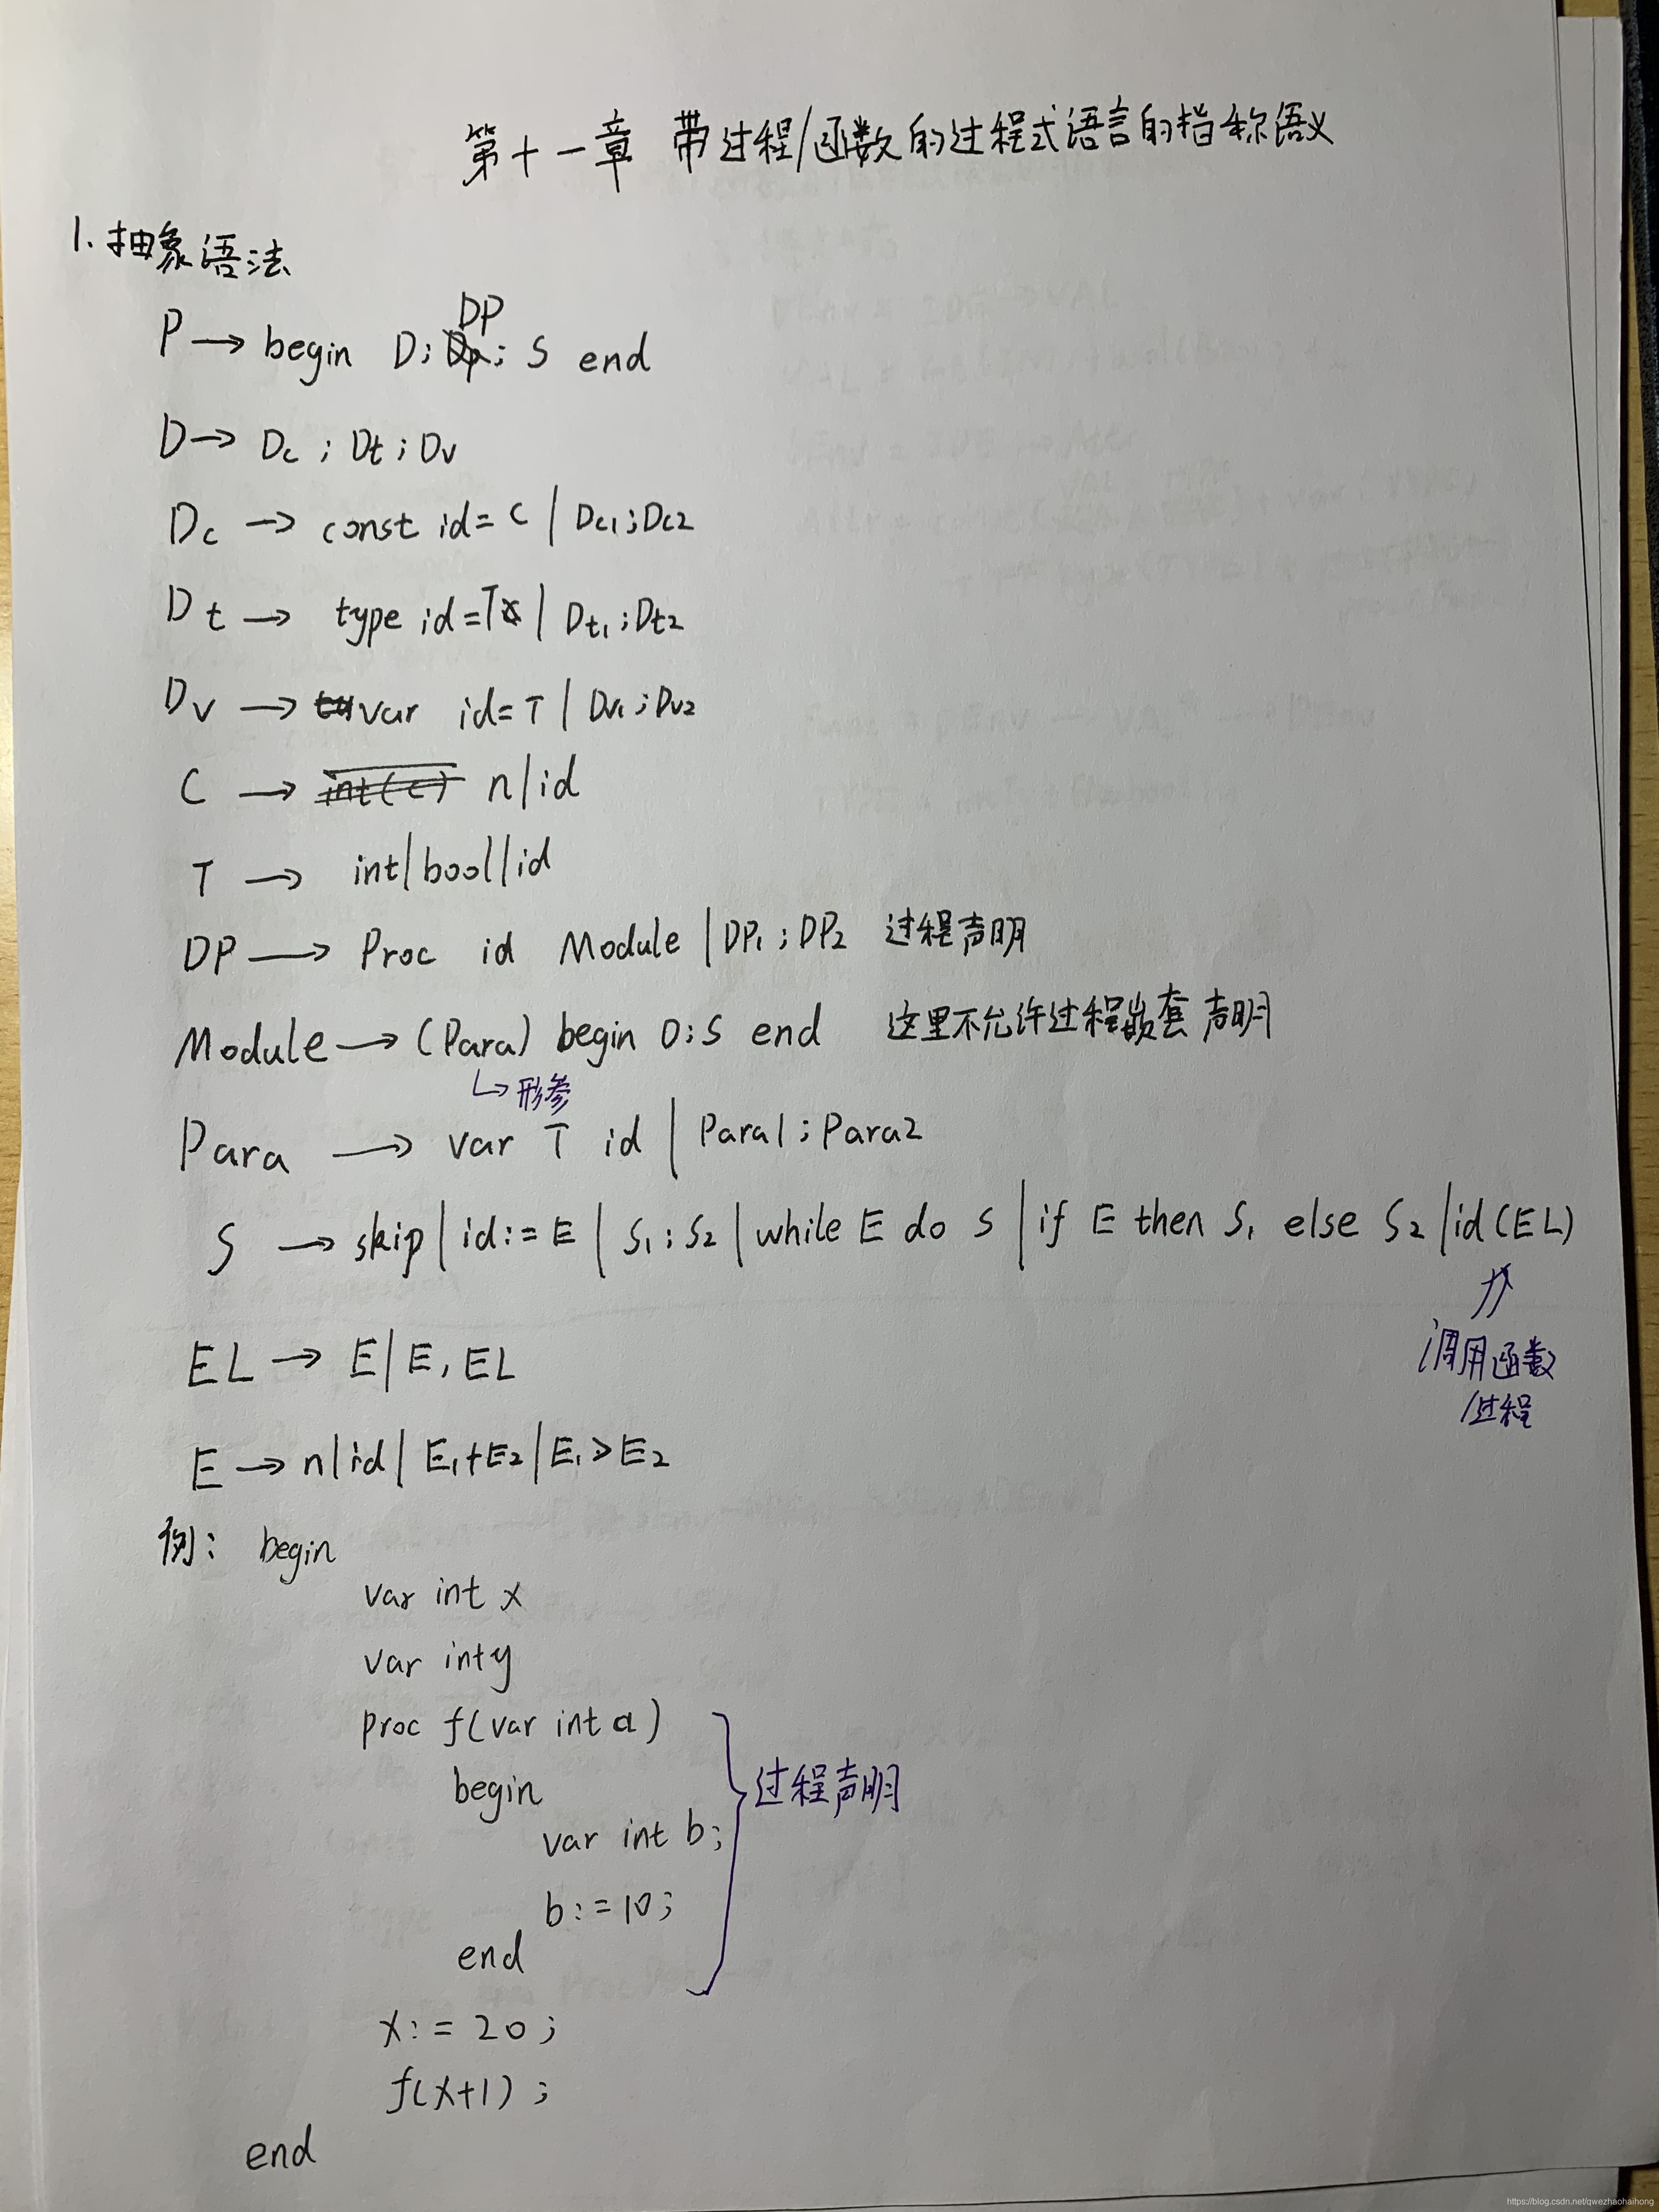 第十一章 带过程/函数的过程式语言的指称语义
1. 抽象语法
P → begin D; DP; S end
D → Dc ; Dt ; Dv
Dc → const id = C | Dc1;Dc2
Dt → type id=T | Dt1;Dt2
Dv → var id=T | Dv1;Dv2
C → int(c) n|id
T → int|bool|id
DP → Proc id Module | DP1;DP2 过程声明
Module → (Para) begin D;S end 这里不允许过程嵌套声明
↳ 形参
Para → var T id | Para1;Para2
S → skip | id:=E | S1;S2 | while E do S | if E then S1 else S2 | id(EL)
⇑
调用函数
/过程
EL → E|E, EL
E → n|id| E1+E2 | E1>E2
例: begin
var int x
var int y
proc f(var int a)
begin
过程声明
var int b;
b:=10;
end
x:=20;
f(x+1);
end
https://blog.csdn.net/qwezhaohaihong